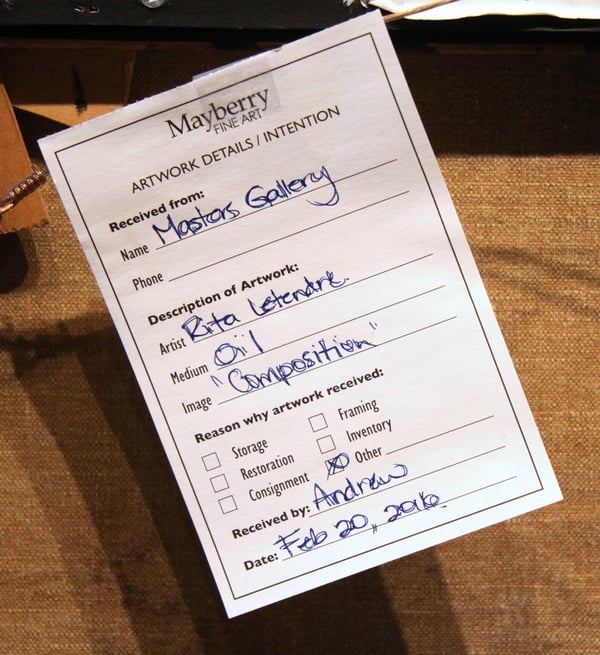 Mayberry
FINE ART
ARTWORK DETAILS / INTENTION
Received from:
Name Masters Gallery
Phone
Description of Artwork:
Artist Rita Letendre.
Medium Oil
Image "Composition"
Reason why artwork received:
Storage Framing
Restoration Inventory
Consignment Other
Received by: Andrew
Date: Feb 20, 2016.